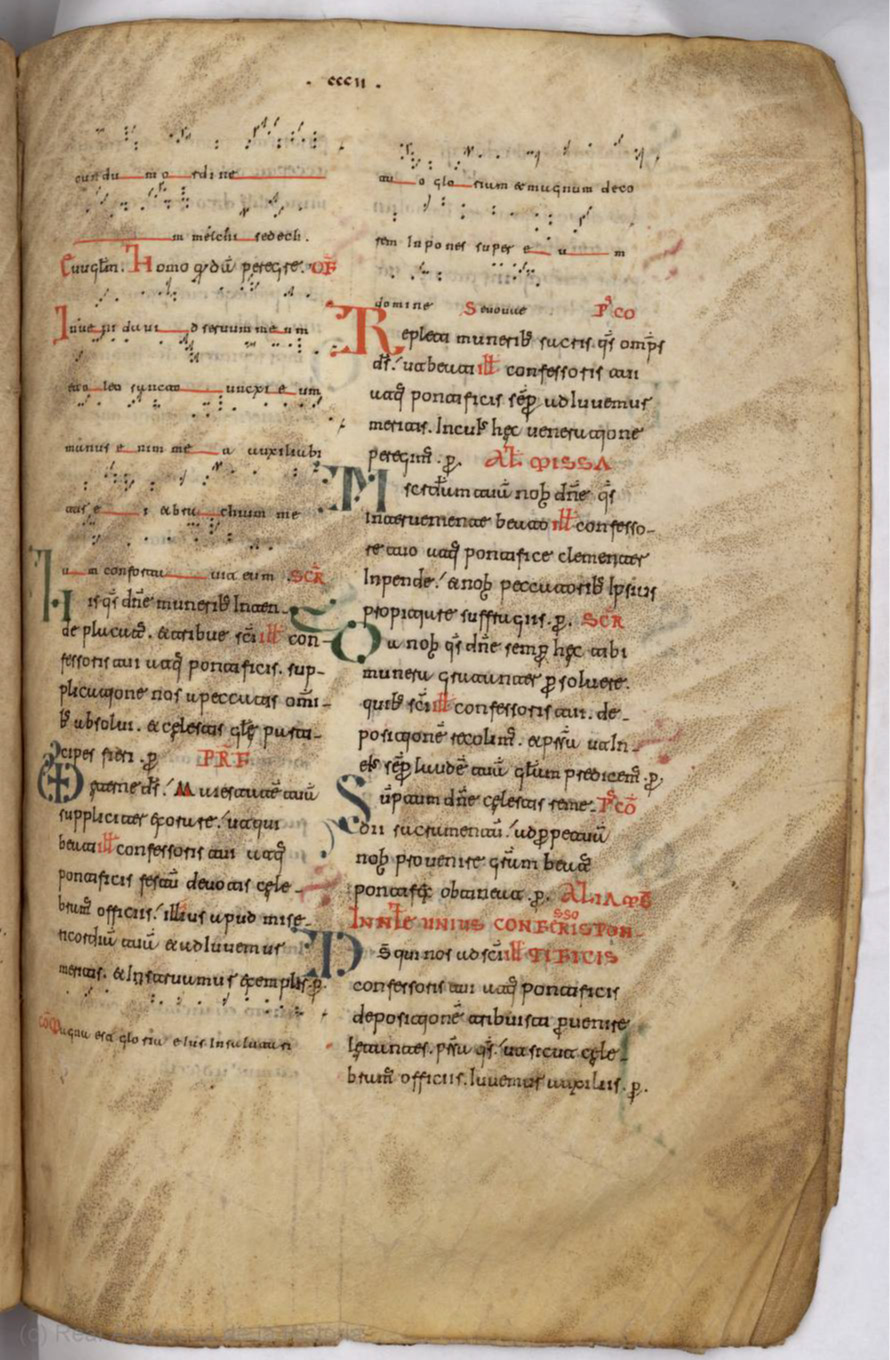 . cccii .
cundu m o rdine
m melchi sedech .
Euuglm. Homo qdā peregre. OF
Inue ni dauid d seruum me um
oleo sancto unxi e um
manus e nim me a auxiliabi
tur e i & bra chium me
u m confortau uit eum . SCR
His qs dñe muneribꝫ Inten
de placatꝰ. & tribue sci ill con-
fessoris tui atqꝫ pontificis. sup-
plicatione nos a peccatis omi-
bꝫ absolui. & celestis glę parti-
cipes fieri . p PRF
eterne ds. Maiestatē tuā
suppliciter exorare. ut qui
beati ill confessoris tui atqꝫ
pontificis festa deuotis cele-
bram officiis. illius apud mise-
ricordiā tuā & adiuuemur
meritis. & Instruamur exemplis. p.
CO Magna est glo ria eius In salutari
tu o glo riam & magnum deco
rem Inpones super e u m
domine Seuouae P CO
Repleti muneribꝫ sacris. qs omps
ds. ut beati ill confessoris tui
atqꝫ pontificis sēp adiuuemur
meritis. In cuiꝰ hęc ueneratione
peregim. p. AL MISSA
Misc̄diam tuā nobꝫ dñe qs
Interueniente beato ill confesso-
re tuo atqꝫ pontifice clementer
Inpende. & nobꝫ peccatoribꝫ Ipsius
propitiare suffragiis. p. SCR
nobꝫ qs dñe semp hęc tibi
munera gratanter p soluere.
quibꝫ sci ill confessoris tui. de-
positionē recolim. & psta ut In
eiꝰ sēp laudē tuā gliam predicem. p.
Supti dñe celestis reme- P CO
dii sacramentū. ad ppetuā
nobꝫ prouenire gram beatꝰ
pontifex obtineat . p. ALIA
IN NTE UNIUS CONFESSORIS PON-
TIFICIS
Ds qui nos ad sci ill
confessoris tui atqꝫ pontificis
depositionē tribuisti puenire
lętantes. psta qs. ut sicut cele-
bram officiis. Iuuemur auxiliis. p.